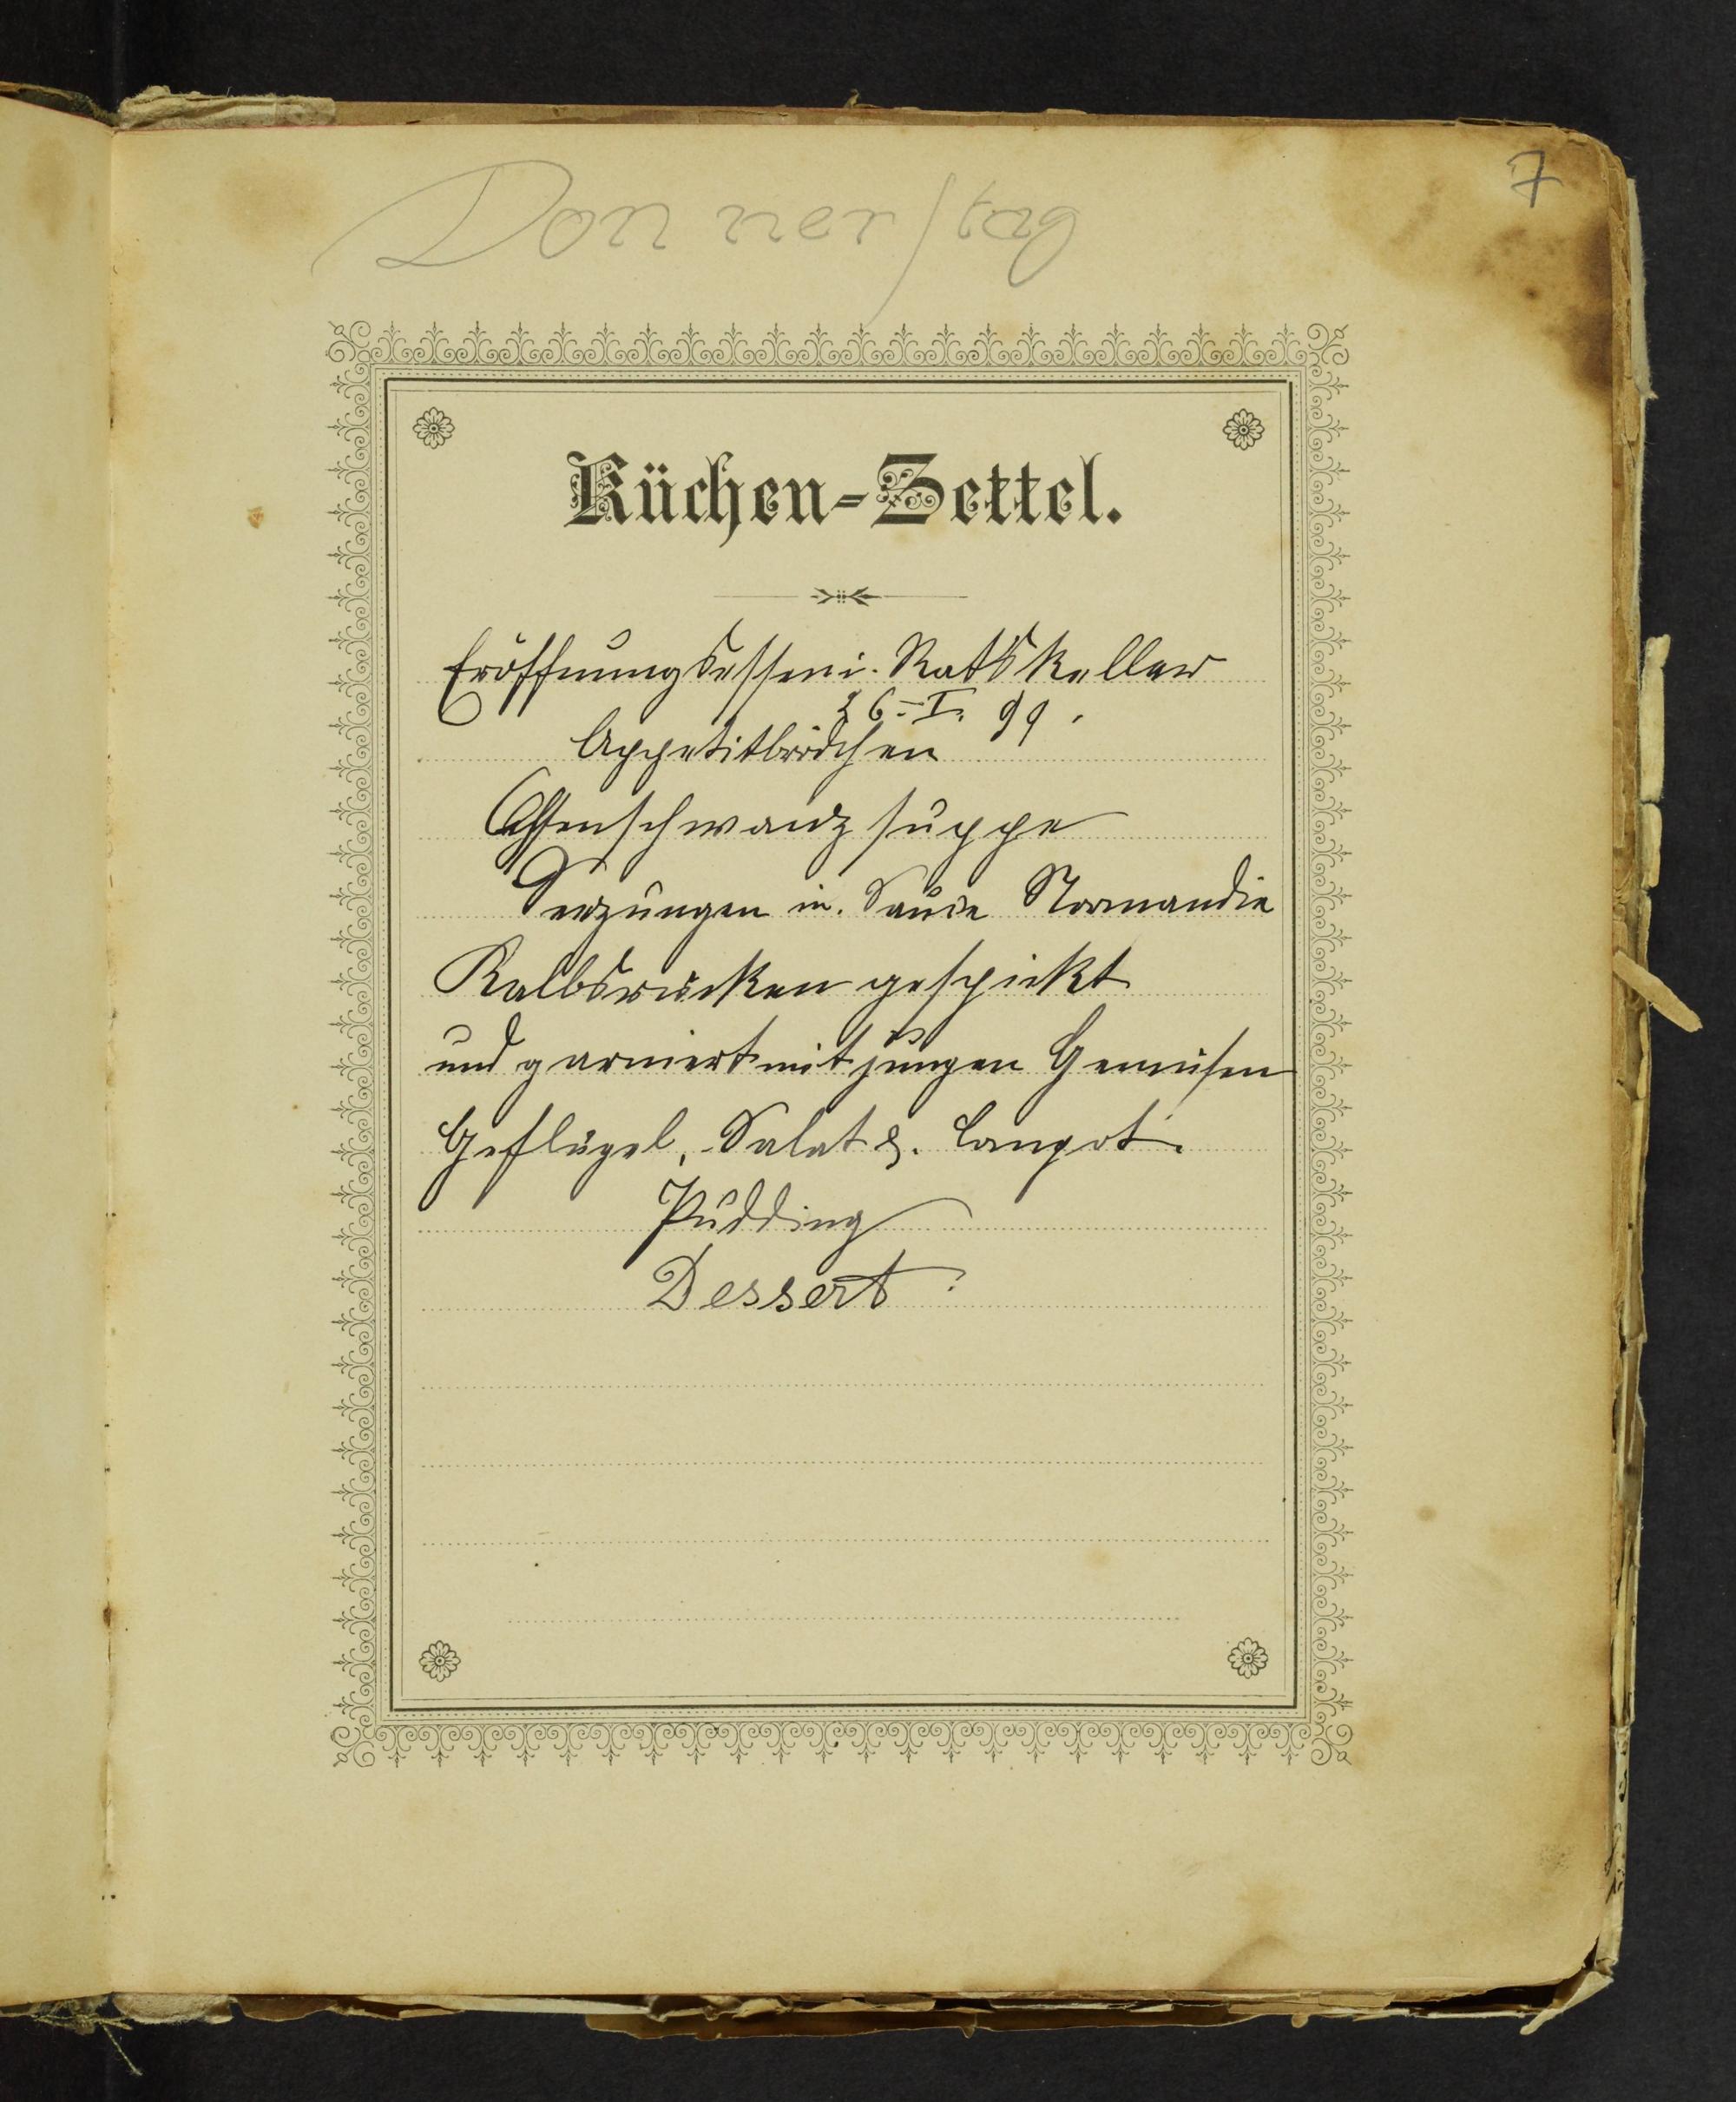 7
Donnerstag
Küchen-Zettel.
Eröffnungsessen i. Ratskeller
26.-I. 99.
Appetitbrödchen
Ochsenschwanzsuppe
Seezungen in. Sauce Normandie
Kalbsrücken gespickt
und garniert mit jungen Gemüsen
Geflügel, Salat &. Compot.
Pudding
Dessert.